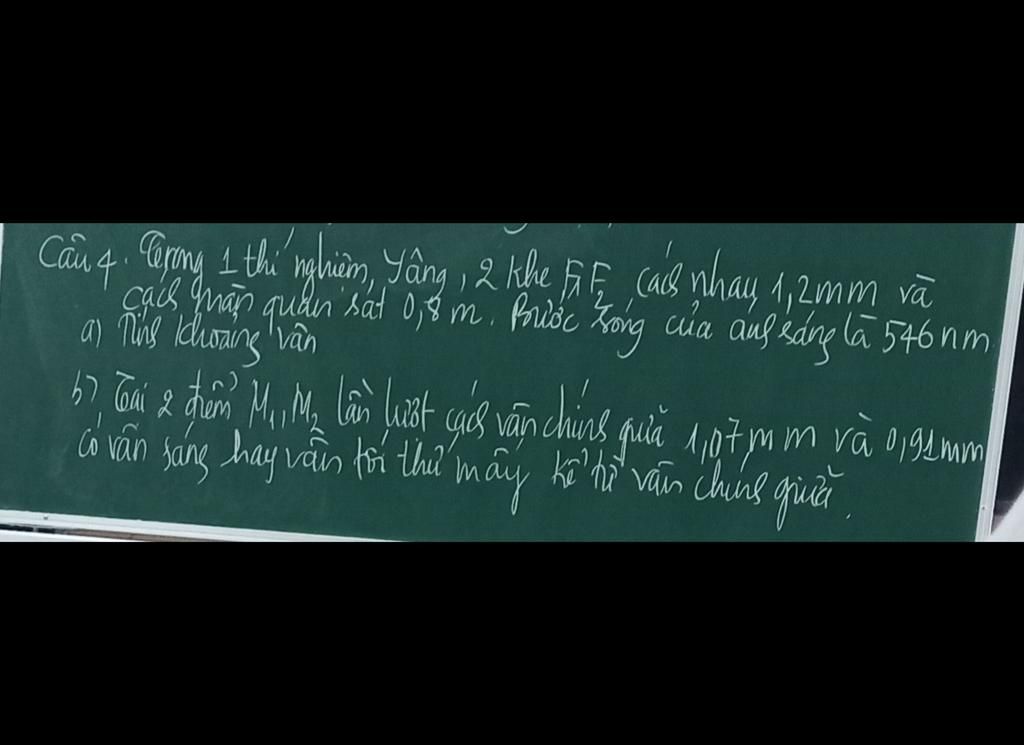 Câu 4. Trong 1 thí nghiệm, Yâng, 2 khe F₁F₂ cách nhau 1,2mm và
cách màn quan sát 0,8m. Bước sóng của ánh sáng là 546nm
a) Tính khoảng vân
b) Tại 2 điểm M₁, M₂ lần lượt cách vân chính giữa 1,07mm và 0,91mm
có vân sáng hay vân tối thứ mấy kể từ vân chính giữa.